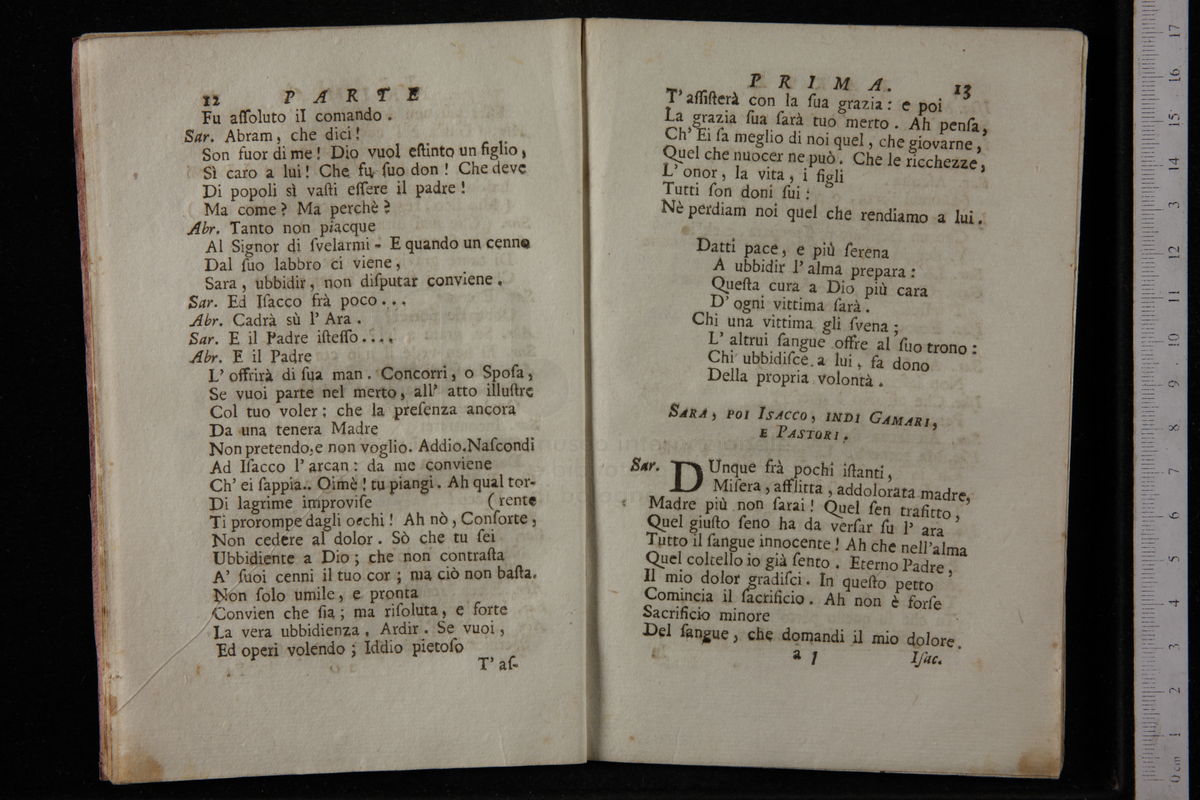 12 PARTE
Fu aſſoluto il comando.
Sar. Abram, che dici!
Son fuor di me! Dio vuol eſtinto un figlio,
Sì caro a lui! Che fu ſuo don! Che deve
Di popoli sì vaſti eſſere il padre!
Ma come? Ma perchè?
Abr. Tanto non piacque
Al Signor di ſvelarmi - E quando un cenno
Dal ſuo labbro ci viene,
Sara, ubbidir, non diſputar conviene.
Sar. Ed Iſacco frà poco...
Abr. Cadrà sù l' Ara.
Sar. E il Padre iſteſſo....
Abr. E il Padre
L' offrirà di ſua man. Concorri, o Spoſa,
Se vuoi parte nel merto, all' atto illuſtre
Col tuo voler; che la preſenza ancora
Da una tenera Madre
Non pretendo, e non voglio. Addio. Naſcondi
Ad Iſacco l' arcan: da me conviene
Ch' ei ſappia.. Oimè! tu piangi. Ah qual tor-
Di lagrime improviſe (rente
Ti prorompe dagli occhi! Ah nò, Conſorte,
Non cedere al dolor. Sò che tu ſei
Ubbidiente a Dio; che non contraſta
A' ſuoi cenni il tuo cor; ma ciò non baſta.
Non ſolo umile, e pronta
Convien che ſia; ma riſoluta, e forte
La vera ubbidienza. Ardir. Se vuoi,
Ed operi volendo; Iddio pietoſo
T' aſ-
PRIMA. 13
T' aſſiſterà con la ſua grazia: e poi
La grazia ſua ſarà tuo merto. Ah penſa,
Ch' Ei ſa meglio di noi quel, che giovarne,
Quel che nuocer ne può. Che le ricchezze,
L' onor, la vita, i figli
Tutti ſon doni ſui:
Nè perdiam noi quel che rendiamo a lui.
Datti pace, e più ſerena
A ubbidir l' alma prepara:
Queſta cura a Dio più cara
D' ogni vittima ſarà.
Chi una vittima gli ſvena;
L' altrui ſangue offre al ſuo trono:
Chi ubbidiſce a lui, fa dono
Della propria volontà.
SARA, POI ISACCO, INDI GAMARI,
E PASTORI.
Sar. DUnque frà pochi iſtanti,
Miſera, afflitta, addolorata madre,
Madre più non ſarai! Quel ſen trafitto,
Quel giuſto ſeno ha da verſar ſu l' ara
Tutto il ſangue innocente! Ah che nell' alma
Quel coltello io già ſento. Eterno Padre,
Il mio dolor gradiſci. In queſto petto
Comincia il ſacrificio. Ah non è forſe
Sacrificio minore
Del ſangue, che domandi il mio dolore.
a 1 Iſac.